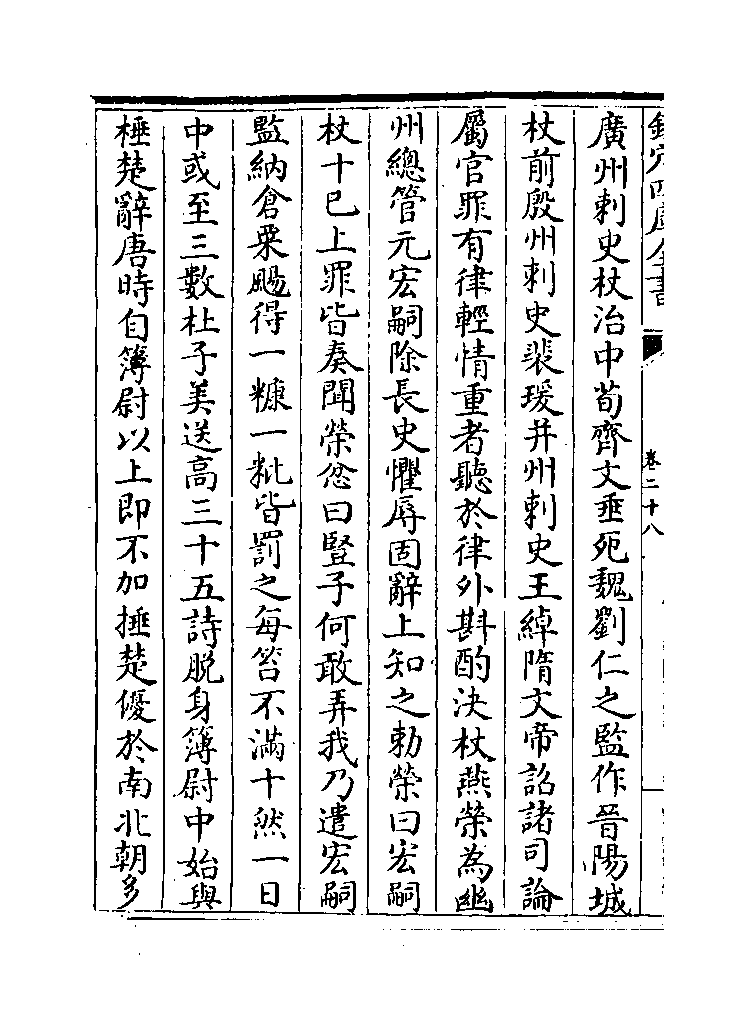 欽定四庫全書
卷二十八
廣州刺史杖治中荀齊文垂死魏劉仁之監作晉陽城
杖前殷州刺史裴瑗并州刺史王綽隋文帝詔諸司論
屬官罪有律輕情重者聽於律外斟酌決杖燕榮為幽
州總管元宏嗣除長史懼辱固辭上知之勅榮曰宏嗣
杖十已上罪皆奏聞榮忿曰豎子何敢弄我乃遣宏嗣
監納倉粟颺得一糠一粃皆罰之每笞不滿十然一日
中或至三數杜子美送高三十五詩脱身簿尉中始與
棰楚辭唐時自簿尉以上即不加捶楚優於南北朝多